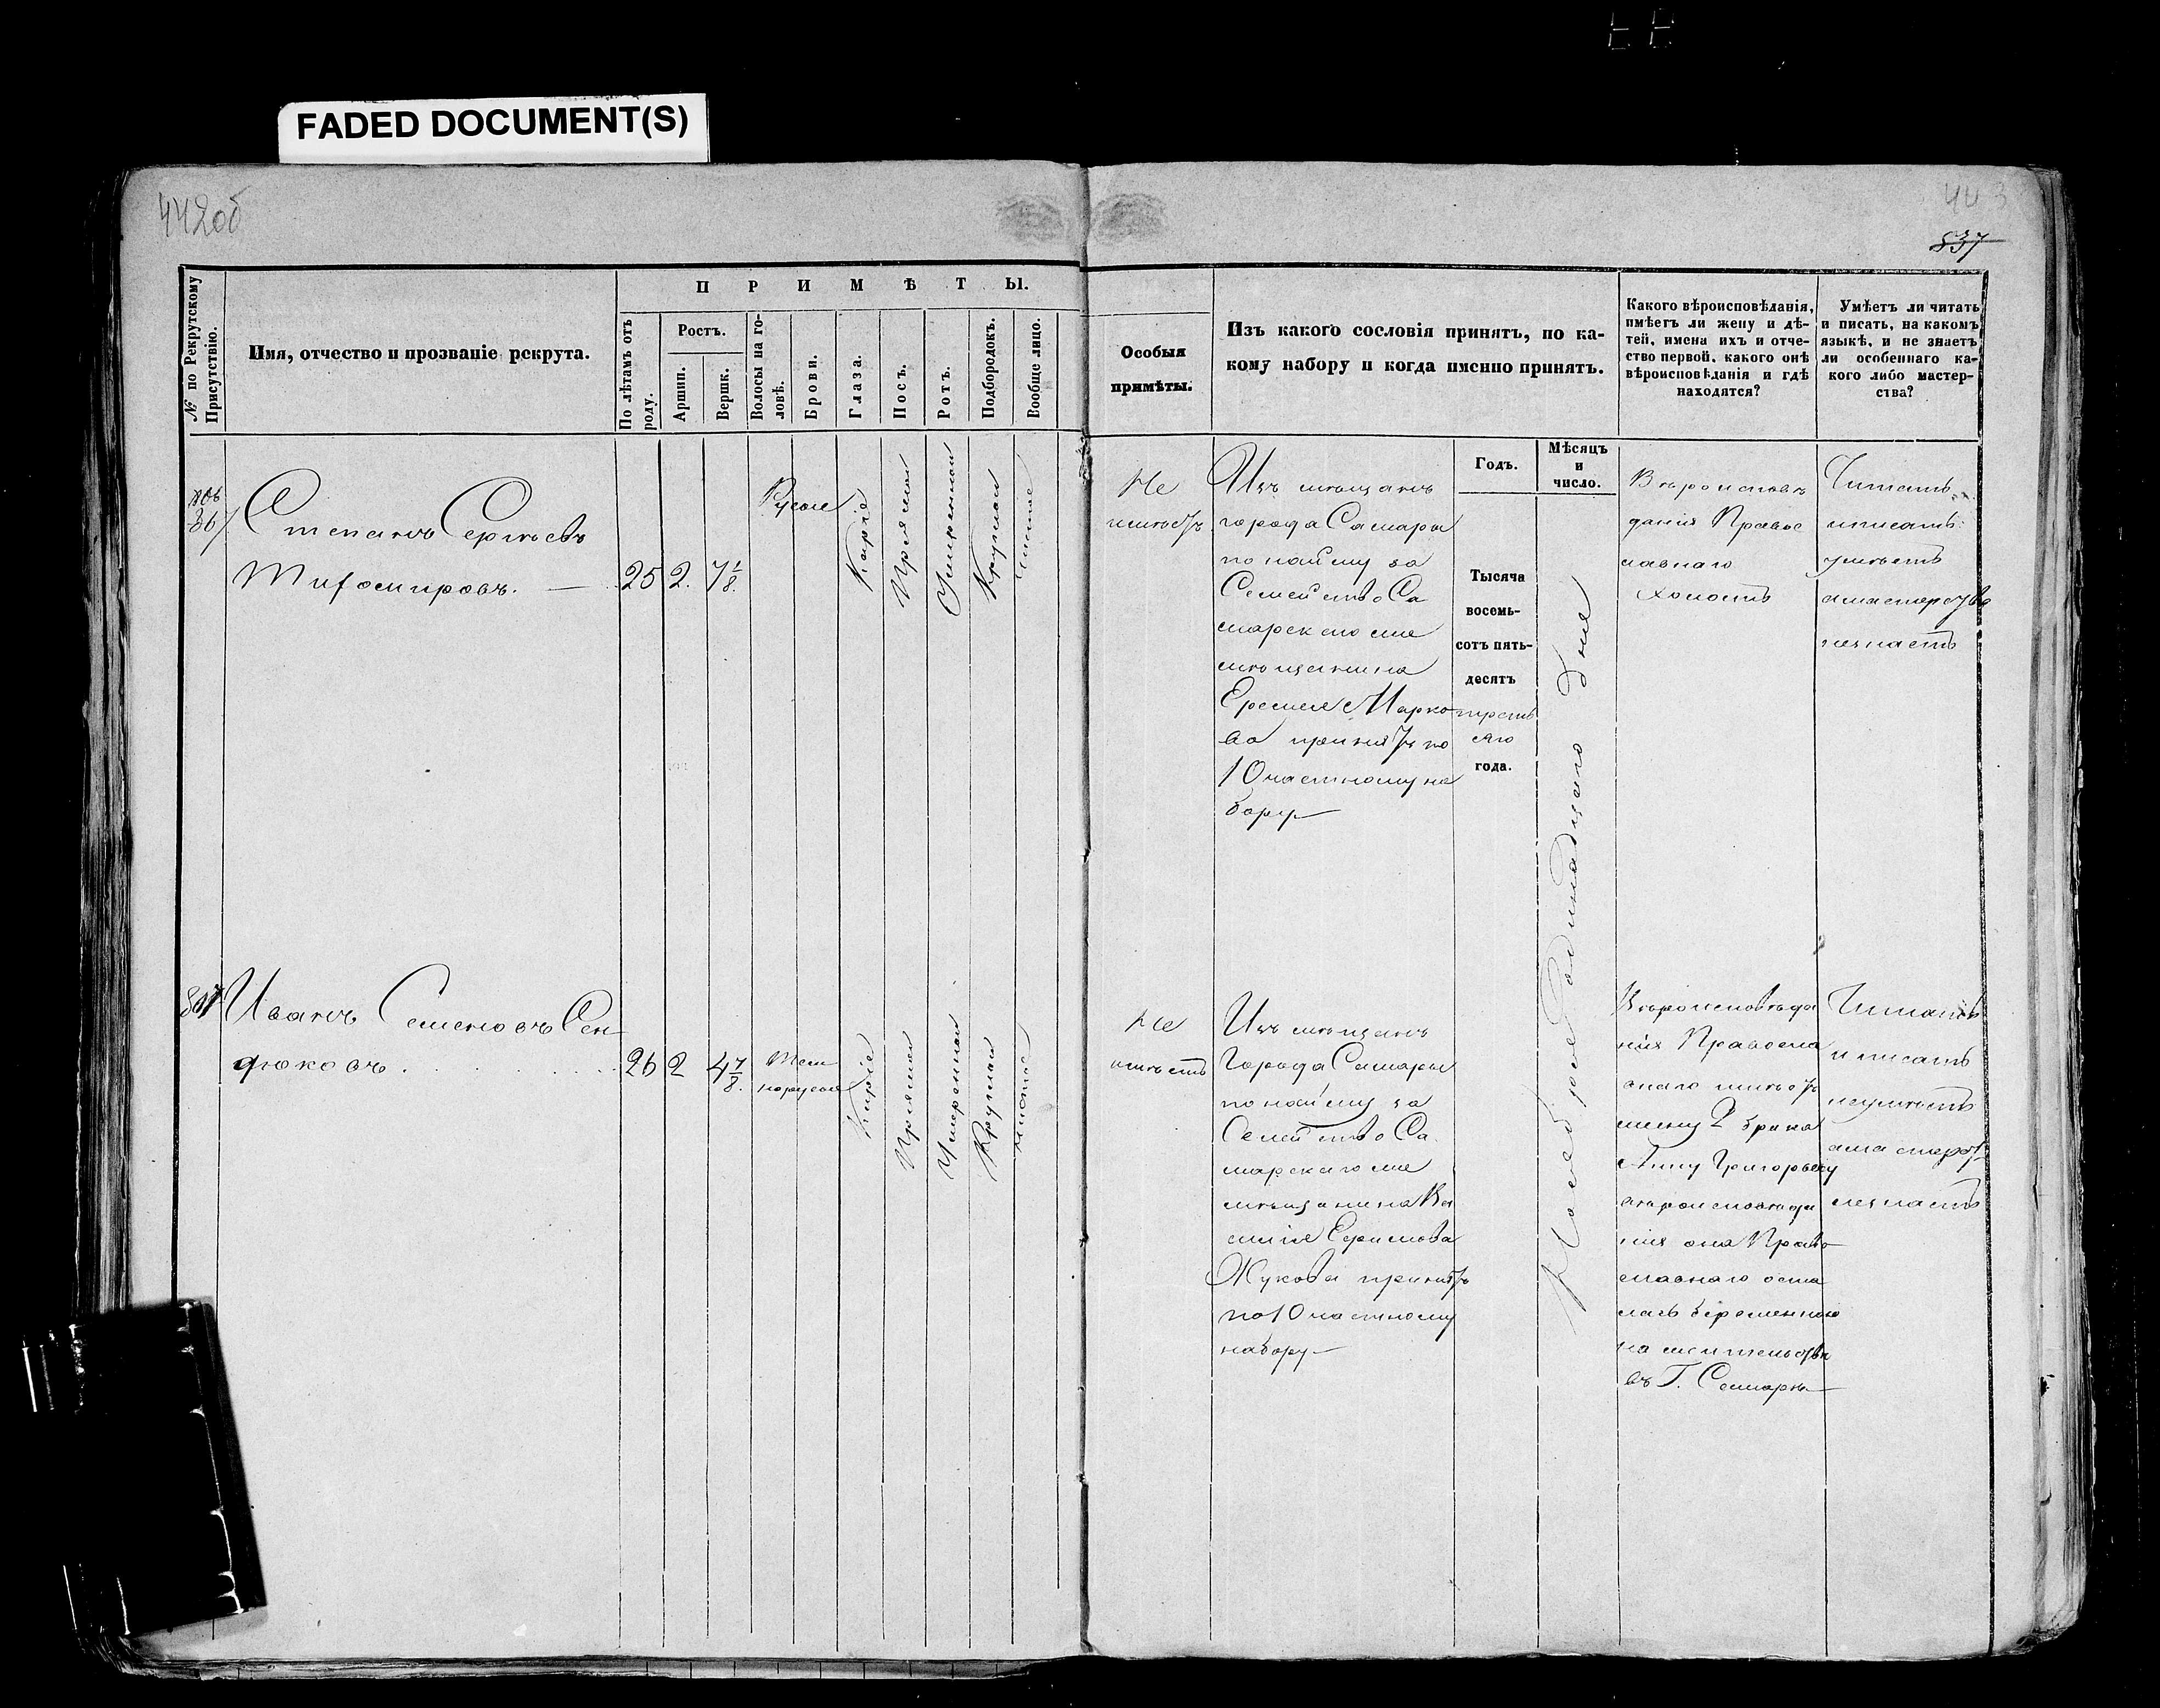 FADED DOCUMENT(S)
442об
443
837
№ по Рекрутскому Присутствію.
Имя, отчество и прозваніе рекрута.
ПРИМѢТЫ.
По лѣтамъ отъ роду.
Ростъ.
Аршин.
Вершк.
Волосы на головѣ.
Брови.
Глаза.
Носъ.
Ротъ.
Подбородокъ.
Вообще лицо.
Особыя
примѣты.
Изъ какого сословія принятъ, по ка-
кому набору и когда именно принятъ.
Какого вѣроисповѣданія,
имѣетъ ли жену и дѣ-
тей, имена ихъ и отче-
ство первой, какого онѣ
вѣроисповѣданія и гдѣ
находятся?
Умѣетъ ли читать
и писать, на какомъ
языкѣ, и не знаетъ
ли особеннаго ка-
кого либо мастер-
ства?
Годъ.
Мѣсяцъ
и
число.
806
Степанъ Сергѣевъ
Тифомировъ.
25 2. 7 1/8.
Русые
Каріе
Прямой
Умеренной
Круглой
чистое
Не
имѣетъ
Изъ мѣщанъ
города Самары
по найму за
Семейство Са
марскаго ме
мѣщанина
Еремея Марко
ва принятъ по
10 частному на
бору
Тысяча
восемь-
сотъ пять-
десятъ
третъ
яго
года.
Ноября Одинадцатого дня
Вѣроисповѣ
данія Правос
лавнаго
холостъ
Читать
иписать
умѣетъ
амастерства
незнаетъ
807
Иванъ Семеновъ Сен
фюковъ
26 2 4 7/8.
Тем
норусые
Каріе
Прямой
Умеренной
Круглой
чистое
Не
имѣетъ
Изъ мѣщанъ
Города Самары
по найму за
Семейство Са
марскаго ме
мѣщанина Ва
силія Ефимова
Жукова принятъ
по 10 частному
набору
Вѣроисповѣда
нія Правосла
внаго имѣетъ
жену 2 брака
Анну Григорьеву
вѣроисповѣда
нія она Право
славнаго оста
лась беременною
на жительствѣ
въ Г. Самарѣ
Читать
и писать
неумѣетъ
амастерст
незнаетъ